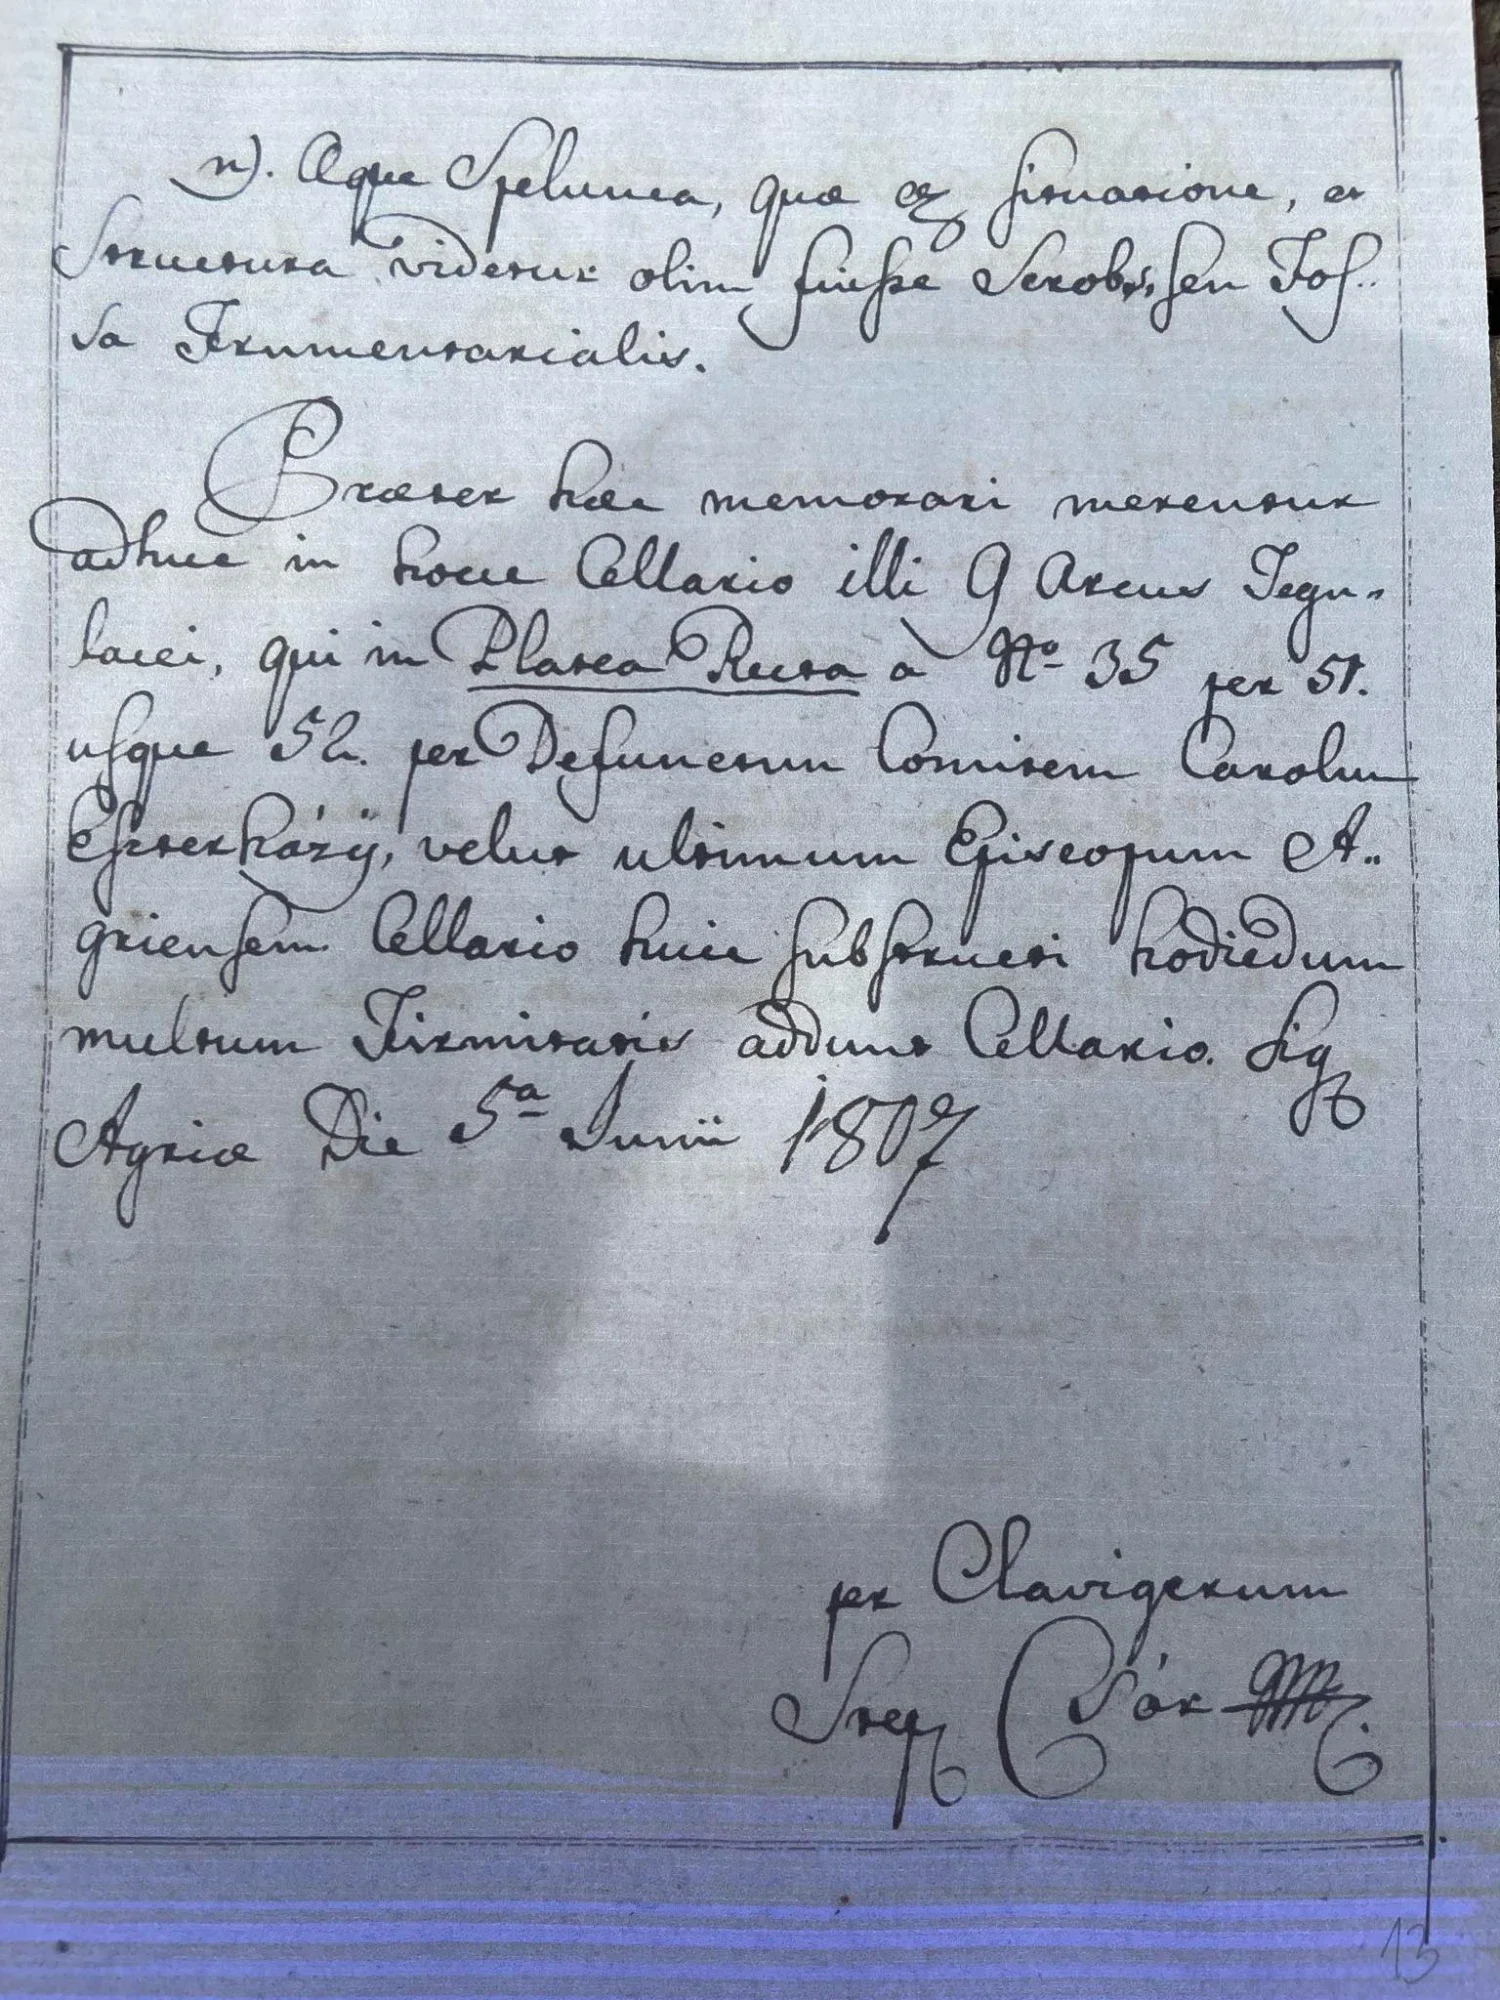 n). Æque Spelunca, quæ ex situatione, et
Structura videtur olim fuisse Scrobs, seu Fos-
sa Frumentarialis.
Præter hæc memorari merentur
adhuc in hocce Cellario illi 9 Arcus Tegu-
lacei, qui in Platea Recta a Nro 35 per 51.
usque 52. per Defunctum Comitem Carolum
Eszterházÿ, velut ultimum Episcopum A-
griensem Cellario huic substructi hodiedum
multum Firmitatis addunt Cellario. Sig
Agriæ Die 5a Junii 1807
per Clavigerum
Step Csák
13